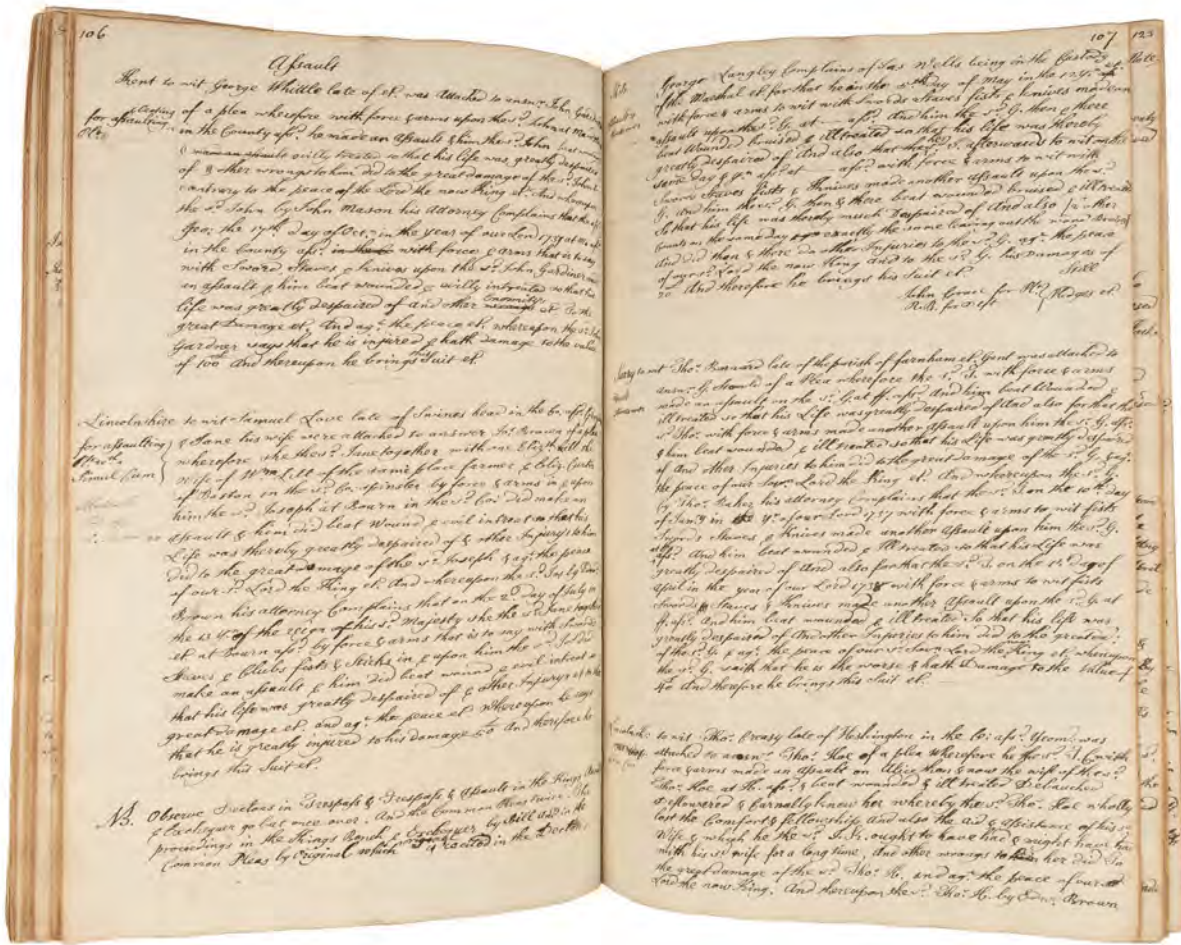 106
Assault
Kent to wit George Whittle late of &c. was Attached to answ.r John
of a plea wherefore with force & arms upon the s.d John at
for assaulting
in the County afs.d he made an Assault & him the s.d John
evilly treated so that his life was greatly despaired
of & other wrongs to him did to the great damage of the s.d John &
contrary to the peace of the Lord the now King &c. And whereupon
the s.d John by John Mason his Attorney Complains that the s.d
Geo. the 17th day of Oct.r in the year of our Lord
in the County afs.d with force & arms that is to say
with Sword Staves & knives upon the s.d John Gardiner
an assault & him beat wounded & evilly intreated so that his
life was greatly despaired of and other Enormitys &c. To the
great Damage &c. And ag.t the peace &c. whereupon the s.d John
Gardner says that he is injured & hath damage to the value
of 100 And thereupon he brings this Suit &c.
Lincolnshire to wit Samuel Love late of Swines head in the Co. afs.d
for assaulting
& Jane his wife were attached to answer Jo.s Brown of a plea
wherefore she the s.d Jane together with one Eliz.th
wife of W.m of the same place farmer & Eliz.
Simul Cum
of Boston in the s.d Co. spinster by force & arms in & upon
him the s.d Joseph at Bourn in the s.d Co: did make an
assault & him did beat Wound & evil intreat so that his
Life was thereby greatly despaired of & other Injurys to him
did to the great damage of the s.d Joseph & ag.t the peace
of our s.d Lord the King &c. And whereupon the s.d Jos by
Brown his attorney Complains that on the 2.d day of July in
the 12 y.r of the reign of his s.d Majesty she the s.d Jane together
&c. at Bourn afs.d by force & arms that is to say with swords
Staves & Clubs fists & Sticks in & upon him the s.d Jos did
make an assault & him did beat wound & evil intreat so
that his life was greatly despaired of & other Injurys &c. to the
great damage &c. and ag.t the peace &c. Whereupon he says
that he is greatly injured to his damage 50 And therefore he
brings this Suit &c.
NB. Observe Declons in Trespass & Trespass & Assault in the Kings Bench
& Exchequer go but once over. And the Common Pleas twice. The
proceedings in the Kings Bench & Exchequer by Bill and in the
Common Pleas by Original which original is recited in the Declon
107
George Langley Complains of Jas Wells being in the Custody
of the Marshal &c. for that he on the day of May in the 12 y.r afs.d
with force & arms to wit with Swords Staves fists & Knives made an
assault upon the s.d G. at — afs.d And him the s.d G. then & there
beat Wounded bruised & ill treated so that his life was thereby
greatly despaired of And also that the s.d J. afterwards to wit on the
same day & y.r afs.d at — afs.d with force & arms to wit with
Swords Staves fists & Knives made another assault upon the s.d
G. And him the s.d G. then & there beat wounded bruised & ill treated
So that his life was thereby much Despaired of And also
Counts on the same day exactly the same leaving out the word bruised
And did then & there do other Injuries to the s.d G. ag.t the peace
of our s.d Lord the now King And to the s.d G. his Damages of
20 And therefore he brings his Suit &c.
Still
John Grace for Pl.t
R.R. for Deft
Pledges &c.
Surry to wit Tho.s Barnard late of the parish of farnham &c. Gent was attached to
answ.r G. of a Plea wherefore the s.d T. with force & arms
made an assault on the s.d G. at ff. afs.d And him beat Wounded
ill treated so that his Life was greatly despaired of And also for that the
s.d Tho.s with force & arms made another assault upon him the s.d G. afs.d
& him beat wounded & ill treated so that his Life was greatly despaired
of And other Injuries to him did to the great damage of the s.d G. & ag.t
the peace of our Sov.n Lord the King &c. And whereupon the s.d G.
by Tho.s Baker his attorney Complains that the s.d T. on the 10th day
of Jan.y in y.r of our Lord 1737 with force & arms to wit fists
Swords Staves & Knives made another assault upon him the s.d G.
afs.d And him beat wounded & ill treated so that his Life was
greatly despaired of And also for that the s.d T. on the 1st day of
April in the year of our Lord 1738 with force & arms to wit fists
Swords Staves & Knives made another assault upon the s.d G. at
ff. afs.d And him beat wounded & ill treated So that his life was
greatly despaired of And other Injuries to him did to the great
of the s.d G. & ag.t the peace of our s.d Sov.n Lord the King &c. whereupon
the s.d G. saith that he is the worse & hath Damage to the value of
40 And therefore he brings this Suit &c.
to wit Tho.s Creasy late of Heckington in the Co: afs.d Yeom.n was
attached to answ.r Tho.s Hoe of a plea Wherefore he the s.d T.C. with
force & arms made an assault on Alice then & now the wife of the s.d
Tho.s Hoe at H. afs.d & beat wounded & ill treated Debauched
Deflowered & Carnally knew her whereby the s.d Tho.s Hoe wholly
lost the Comfort & fellowship And also the aid & assistance of his s.d
Wife & which he the s.d T.H. ought to have had & might have had
with his s.d wife for a long time, And other wrongs to her did To
the great damage of the s.d Tho.s H. and ag.t the peace of our s.d
Lord the now King. And thereupon the s.d Tho.s H. by Edw.d Brown
123